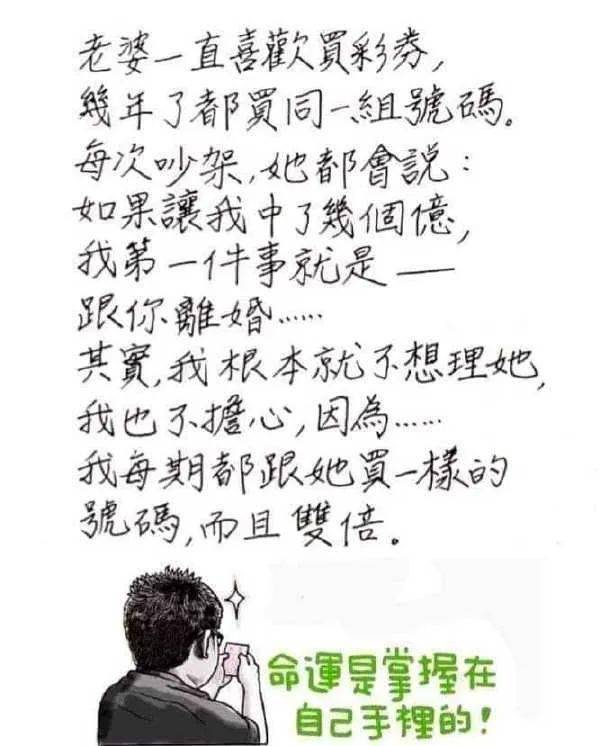 老婆一直喜歡買彩券,
幾年了都買同一組號碼。
每次吵架,她都會説:
如果讓我中了幾個億,
我第一件事就是——
跟你離婚……
其實,我根本就不想理她,
我也不擔心,因為……
我每期都跟她買一樣的
號碼,而且雙倍。
命運是掌握在
自己手裡的!